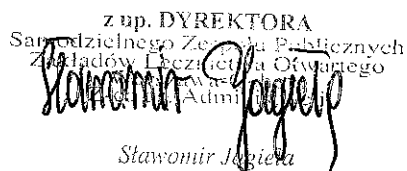 z up. DYREKTORA
Samodzielnego Zespołu Publicznych
Zakładów Lecznictwa Otwartego
Sławomir Jagieła
Sławomir Jagieła